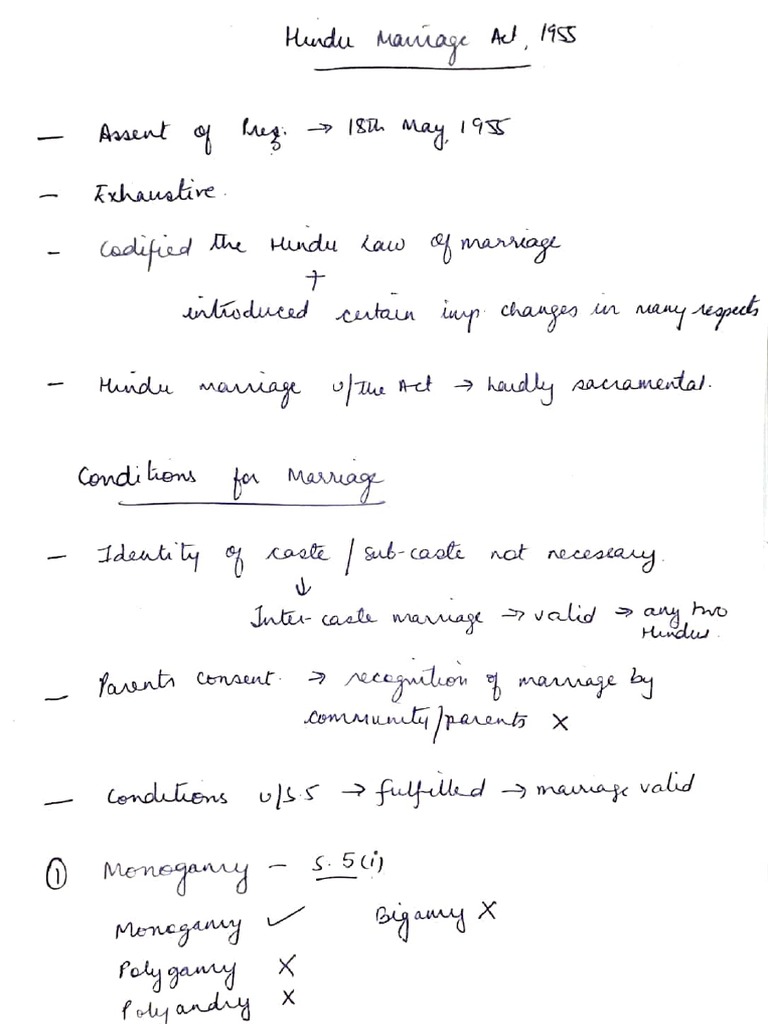 Hindu Marriage Act, 1955
— Assent of Prez. → 18th May, 1955
— Exhaustive.
- Codified the Hindu Law of marriage
+
introduced certain imp. changes in many respects
- Hindu marriage u/the Act → hardly sacramental.
Conditions for Marriage
— Identity of caste / sub-caste not necessary.
↓
Inter-caste marriage → valid → any two
Hindus.
— Parents consent. → recognition of marriage by
community/parents X
— Conditions u/s.5 → fulfilled → marriage valid
① Monogamy - S. 5(i)
Monogamy ✓ Bigamy X
Polygamy X
Polyandry X